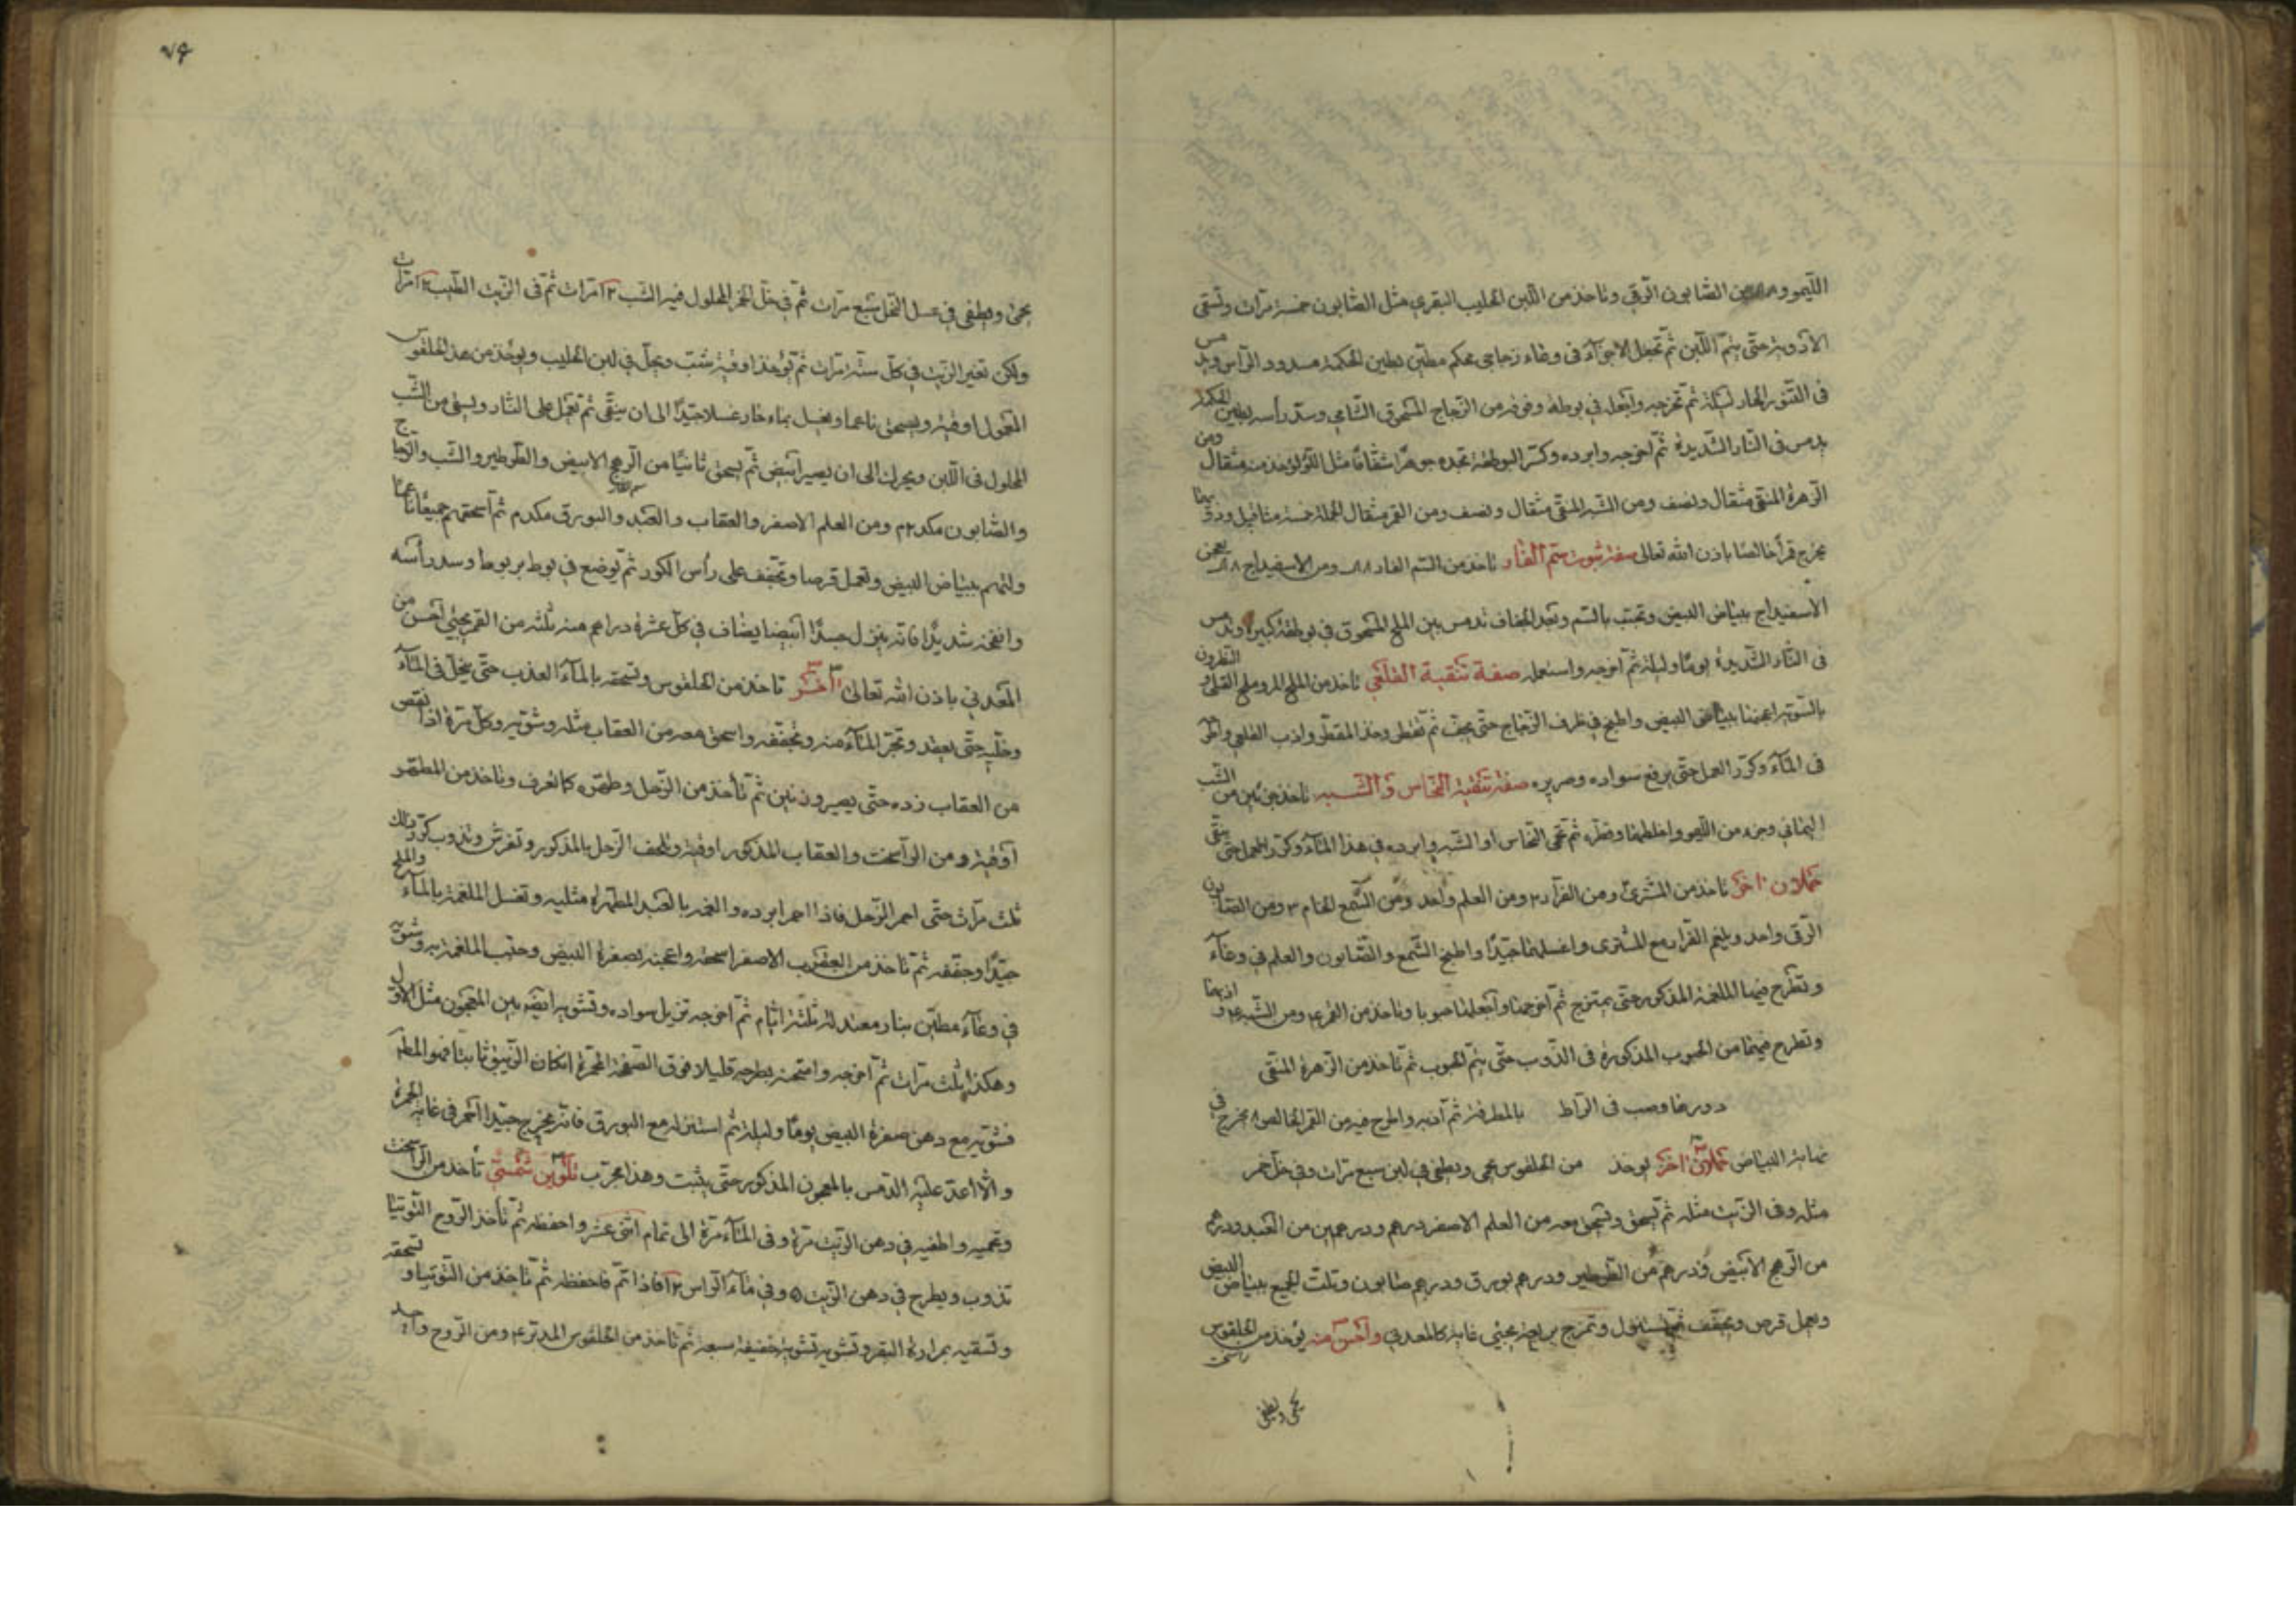 الليمو ومن الصابون الرقي وتاخذ من اللبن الحليب البقري مثل الصابون خمسة مرات وتسقي
الادوية حتى يتم اللبن ثم تجعل الاجزاء في وعاء زجاجي محكم مطين بطين الحكمة مسدود الراس ويدمس
في التنور الحار ليلة ثم تخرجه واجعله في بوطة وفوقه من الزجاج المسحوق الشامي وسد راسه بطين الحكمة
يدمس في النار الشديدة ثم اخرجه وابرده وكسر البوطقة تجده جوهرا شفافا مثل اللؤلؤ خذ منه مثقال ومن
الزهرة المنقى مثقال ونصف ومن الشبه المنقى مثقال ونصف ومن القمر مثقال الجملة خمسة مثاقيل
يخرج قمرا خالصا باذن الله تعالى صفة ثبوت سم الفار تاخذ من السم الفار ومن الاسفيداج يعجن
الاسفيداج ببياض البيض وتحبب بالسم وبعد الجفاف تدمس بين الملح المسحوق في بوطقة كبيرة
في النار الشديدة يوما وليلة ثم اخرجه واستعمله صفة تنقية القلعي تاخذ من الملح المر وملح القلي والنطرون
بالسوية اعجنها ببياض البيض واطبخ في ظرف الزجاج حتى يجف ثم تقطر وخذ المقطر واذب القلعي
في الماء وكرر العمل حتى يرفع سواده وصريره صفة تنقية النحاس والشبه تاخذ جزئين من الشب
اليماني وجزء من الليمو واخلطها وقطره ثم تحمى النحاس او الشبه وابرده في هذا الماء وكرر العمل حتى ينقى
حملان اخر تاخذ من المشتري ومن الفرار ٢ ومن العلم واحد ومن الشمع الخام ٣ ومن الصابون
الرقي واحد ويلغم الفرار مع المشتري واغسلها جيدا واطبخ الشمع والصابون والعلم في وعاء
وتطرح فيها الملغمة المذكورة حتى يمتزج ثم اخرجها واجعلها حبوبا وتاخذ من القمر ٤ ومن الشبه ٤ واذبها
وتطرح فيها من الحبوب المذكورة في الذوب حتى يتم الحبوب ثم تاخذ من الزهرة المنقى
دورها وصب في الراط بالمطرقة ثم اذبه واطرح فيه من القمر الخالص ٨ يخرج في
نهاية البياض حملان اخر يوخذ من الخلقوس يحمى ويطفى في لبن سبع مرات وفي خل خمر
مثله وفي الزيت مثله ثم يسحق وتسحق معه من العلم الاصفر درهم ودرهمين من العبد ودرهم
من الرهج الابيض ودرهم من الطرطير ودرهم بورق ودرهم صابون وتلت الجميع ببياض البيض
ويعمل قرص ويجفف ثم يستنزل وتمزج برابعة يجيئ غاية كالمعدني واحسن منه يوخذ من الخلقوس
راسخت
يحمى ويطفى
٧٩
يحمى ويطفى في عسل النحل سبع مرات ثم في خل الخمر المحلول فيه الشب ١٢ مرات ثم في الزيت الطيب ١٢ مرات
ولكن تغير الزيت في كل ستة مرات ثم تؤخذ اوقية شب ويحل في لبن الحليب ويوخذ من هذ الخلقوس
المعمول اوقية ويسحق ناعما ويغسل بماء حار غسلا جيدا الى ان ينقى ثم تعمل على النار ويسقى من الشب
المحلول في اللبن ويحرك الى ان يصير ابيض ثم يسحق ثانيا من الرهج الابيض والطرطير والشب والزجاج
والصابون مكد ٢م ومن العلم الاصفر والعقاب والعبد والبورق مكدم ثم اسحقهم جميعا ناعما
ولتهم ببياض البيض وتعمل قرصا وتجفف على رأس الكور ثم توضع في بوط بربوط وسد رأسه
وانفخه شديدا فانه ينزل جسدا ابيضا يضاف في كل عشرة دراهم منه ثلثه من القمر يجيئ احسن من
المعدني باذن الله تعالى اخر تاخذ من الخلقوس وتسحقه بالماء العذب حتى ينحل في الماء
وخليه حتى يعقد وتجر الماء منه وتجففه واسحق معه من العقاب مثله وشويه وكل مرة اذا نقص
من العقاب زده حتى يصير وزنين ثم تأخذ من الزحل وطهره كما تعرف وتاخذ من المطهر
اوقية ومن الراسخت والعقاب المذكور اوقية وتلحف الزحل بالمذكور وتفرش وتذوب كرر ذلك
ثلث مرات حتى احمر الزحل فاذا احمر ابرده والغمه بالعبد المطهر له مثليه وتغسل الملغمة بالماء والملح
جيدا وجففه ثم تاخذ من العقرب الاصفر اسحقه واعجنه بصفرة البيض وحبب الملغمة به وشويه
في وعاء مطين بنار معتدلة ثلثة ايام ثم اخرجه تزيل سواده وتشويه ايضا بين المعجون مثل الاول
وهكذا ثلث مرات ثم اخرجه وامتحنه بطرحه قليلا فوق الصفحة المحمرة انكان الزيبق ثابتا فهو المطلوب
فشويه مع دهن صفرة البيض يوما وليلة ثم استنزله مع البورق فانه يخرج جيدا احمر في غاية الحمرة
والا اعد عليه الدمس بالمعجون المذكور حتى يثبت وهذا مجرب تلوين شمسي تأخذ من الراسخت
وتحميه واطفيه في دهن الزيت مرة وفي الماء مرة الى تمام اثنى عشر واحفظه ثم تأخذ الروح التوتيا
تذوب ويطرح في دهن الزيت ٥ وفي ماء الراس ١٢ فاذا تم فاحفظه ثم تاخذ من التوتيا وتسحقه
وتسقيه بمرارة البقر وتشويه تشوية خفيفة سبعة ثم تاخذ من الخلقوس المدبر ٤ ومن الروح واحد